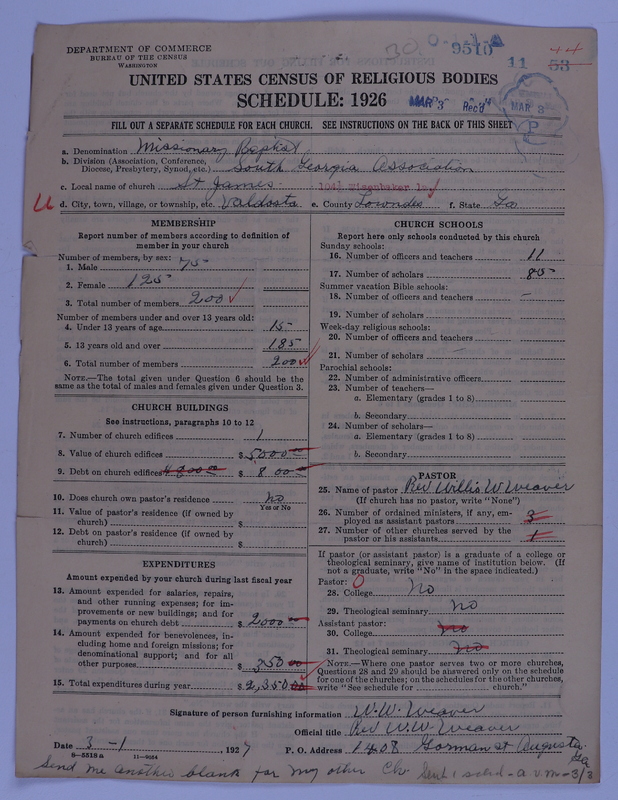 DEPARTMENT OF COMMERCE
BUREAU OF THE CENSUS
WASHINGTON
9510
11 53
44
UNITED STATES CENSUS OF RELIGIOUS BODIES
SCHEDULE: 1926
MAR 3 Rec'd
MAR 3
P
FILL OUT A SEPARATE SCHEDULE FOR EACH CHURCH. SEE INSTRUCTIONS ON THE BACK OF THIS SHEET
a. Denomination Missionary Baptist
b. Division (Association, Conference, Diocese, Presbytery, Synod, etc.) South Georgia Association
c. Local name of church St James
d. City, town, village, or township, etc. Valdosta e. County Lowndes f. State Ga
MEMBERSHIP
Report number of members according to definition of
member in your church
Number of members, by sex:
1. Male 75
2. Female 125
3. Total number of members 200
Number of members under and over 13 years old:
4. Under 13 years of age 15
5. 13 years old and over 185
6. Total number of members 200
NOTE.—The total given under Question 6 should be the
same as the total of males and females given under Question 3.
CHURCH BUILDINGS
See instructions, paragraphs 10 to 12
7. Number of church edifices 1
8. Value of church edifices $ 5000 00
9. Debt on church edifices $ 8 00
10. Does church own pastor's residence No
Yes or No
11. Value of pastor's residence (if owned by
church) $
12. Debt on pastor's residence (if owned by
church) $
EXPENDITURES
Amount expended by your church during last fiscal year
13. Amount expended for salaries, repairs,
and other running expenses; for im-
provements or new buildings; and for
payments on church debt $ 2000
14. Amount expended for benevolences, in-
cluding home and foreign missions; for
denominational support; and for all
other purposes $ 350 00
15. Total expenditures during year $ 2,350 00
CHURCH SCHOOLS
Report here only schools conducted by this church
Sunday schools:
16. Number of officers and teachers 11
17. Number of scholars 85
Summer vacation Bible schools:
18. Number of officers and teachers —
19. Number of scholars
Week-day religious schools:
20. Number of officers and teachers
21. Number of scholars
Parochial schools:
22. Number of administrative officers
23. Number of teachers—
a. Elementary (grades 1 to 8)
b. Secondary
24. Number of scholars—
a. Elementary (grades 1 to 8)
b. Secondary
PASTOR
25. Name of pastor Rev Willis W Weaver
(If church has no pastor, write "None")
26. Number of ordained ministers, if any, em-
ployed as assistant pastors 3
27. Number of other churches served by the
pastor or his assistants 1
If pastor (or assistant pastor) is a graduate of a college or
theological seminary, give name of institution below. (If
not a graduate, write "No" in the space indicated.)
Pastor: 0
28. College No
29. Theological seminary No
Assistant pastor:
30. College No
31. Theological seminary No
NOTE.—Where one pastor serves two or more churches,
Questions 28 and 29 should be answered only on the schedule
for one of the churches; on the schedules for the other churches,
write "See schedule for church."
Signature of person furnishing information W. W. Weaver
Official title Rev W. W. Weaver
Date 3-1, 1927 P. O. Address 1408 Gorman st Augusta Ga
8—5518a 11—9084
Send me another blank for my other Ch. Sent 1 sched - a.v.m - 3/3